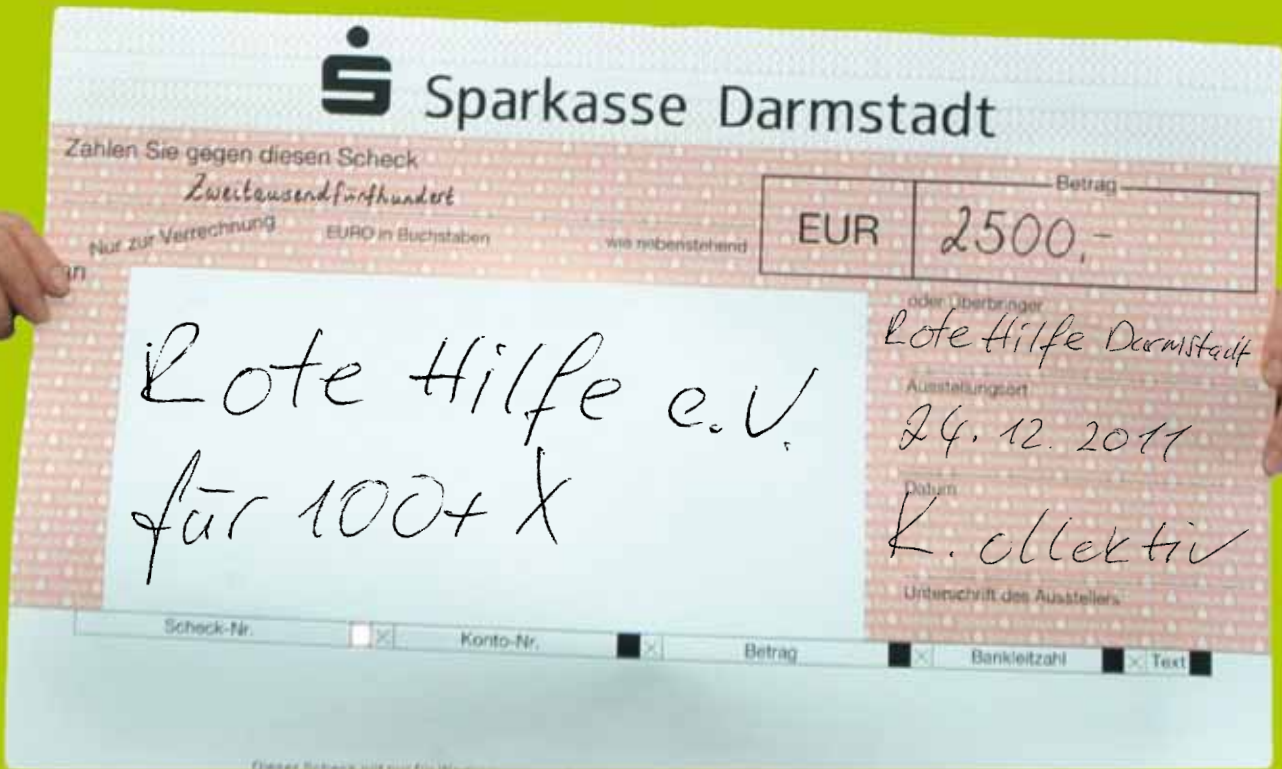 Sparkasse Darmstadt
Zahlen Sie gegen diesen Scheck
Zweitausendfünfhundert
Nur zur Verrechnung
EURO in Buchstaben
wie nebenstehend
Betrag
EUR 2500,-
an
Rote Hilfe e.V.
für 100+ X
oder Überbringer
Rote Hilfe Darmstadt
Ausstellungsort
24.12.2011
Datum
K. ollektiv
Unterschrift des Ausstellers
Scheck-Nr. Konto-Nr. Betrag Bankleitzahl Text
Dieser Scheck